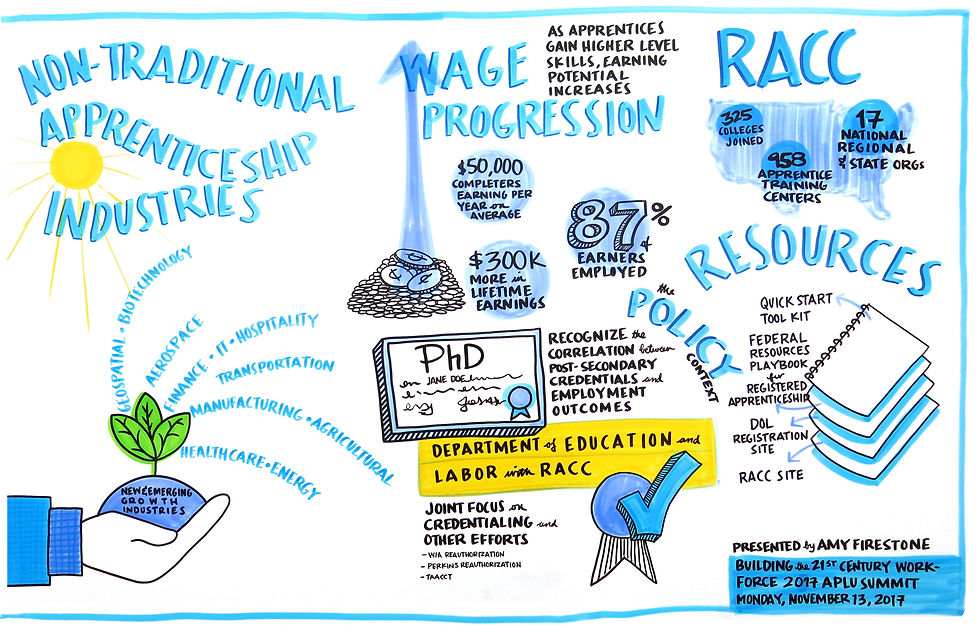 NON-TRADITIONAL
APPRENTICESHIP
INDUSTRIES
GEOSPATIAL • BIOTECHNOLOGY
AEROSPACE
FINANCE • IT • HOSPITALITY
TRANSPORTATION
MANUFACTURING • AGRICULTURAL
HEALTHCARE • ENERGY
NEW & EMERGING
GROWTH
INDUSTRIES
WAGE
PROGRESSION
AS APPRENTICES
GAIN HIGHER LEVEL
SKILLS, EARNING
POTENTIAL
INCREASES
$50,000
COMPLETERS
EARNING PER
YEAR on
AVERAGE
$300K
MORE in
LIFETIME
EARNINGS
87%
of
EARNERS
EMPLOYED
RACC
325
COLLEGES
JOINED
958
APPRENTICE
TRAINING
CENTERS
17
NATIONAL
REGIONAL
& STATE ORGS
RESOURCES
QUICK START
TOOL KIT
FEDERAL
RESOURCES
PLAYBOOK
for
REGISTERED
APPRENTICESHIP
DOL
REGISTRATION
SITE
RACC SITE
the
POLICY
CONTEXT
PhD
JANE DOE
RECOGNIZE the
CORRELATION between
POST-SECONDARY
CREDENTIALS and
EMPLOYMENT
OUTCOMES
DEPARTMENT of EDUCATION and
LABOR with RACC
JOINT FOCUS on
CREDENTIALING and
OTHER EFFORTS
- WIA REAUTHORIZATION
- PERKINS REAUTHORIZATION
- TAACCT
PRESENTED by AMY FIRESTONE
BUILDING the 21ST CENTURY WORK-
FORCE 2017 APLU SUMMIT
MONDAY, NOVEMBER 13, 2017